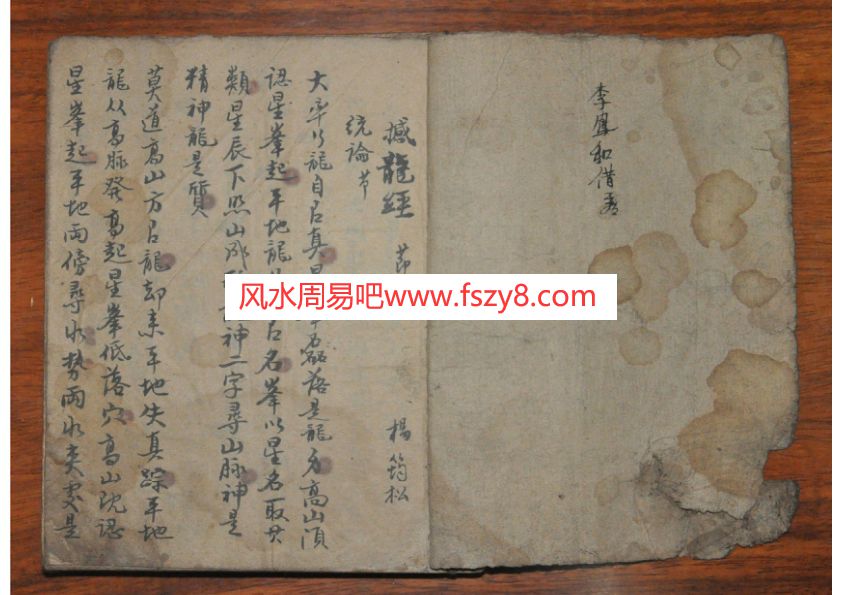 李鳳和借
撼龍經 節 楊筠松
統論節
大率行龍自有真星磊落是龍身高山須
認星峯起平地龍有名峯以星名取其
類星辰下照山成神二字尋山脈神是
精神龍是質
莫道高山方有龍却來平地失真踪平地
龍从高脉發高起星峯低落穴高山既認
星峯起平地兩傍尋水勢兩水夾處是
风水周易吧www.fszy8.com